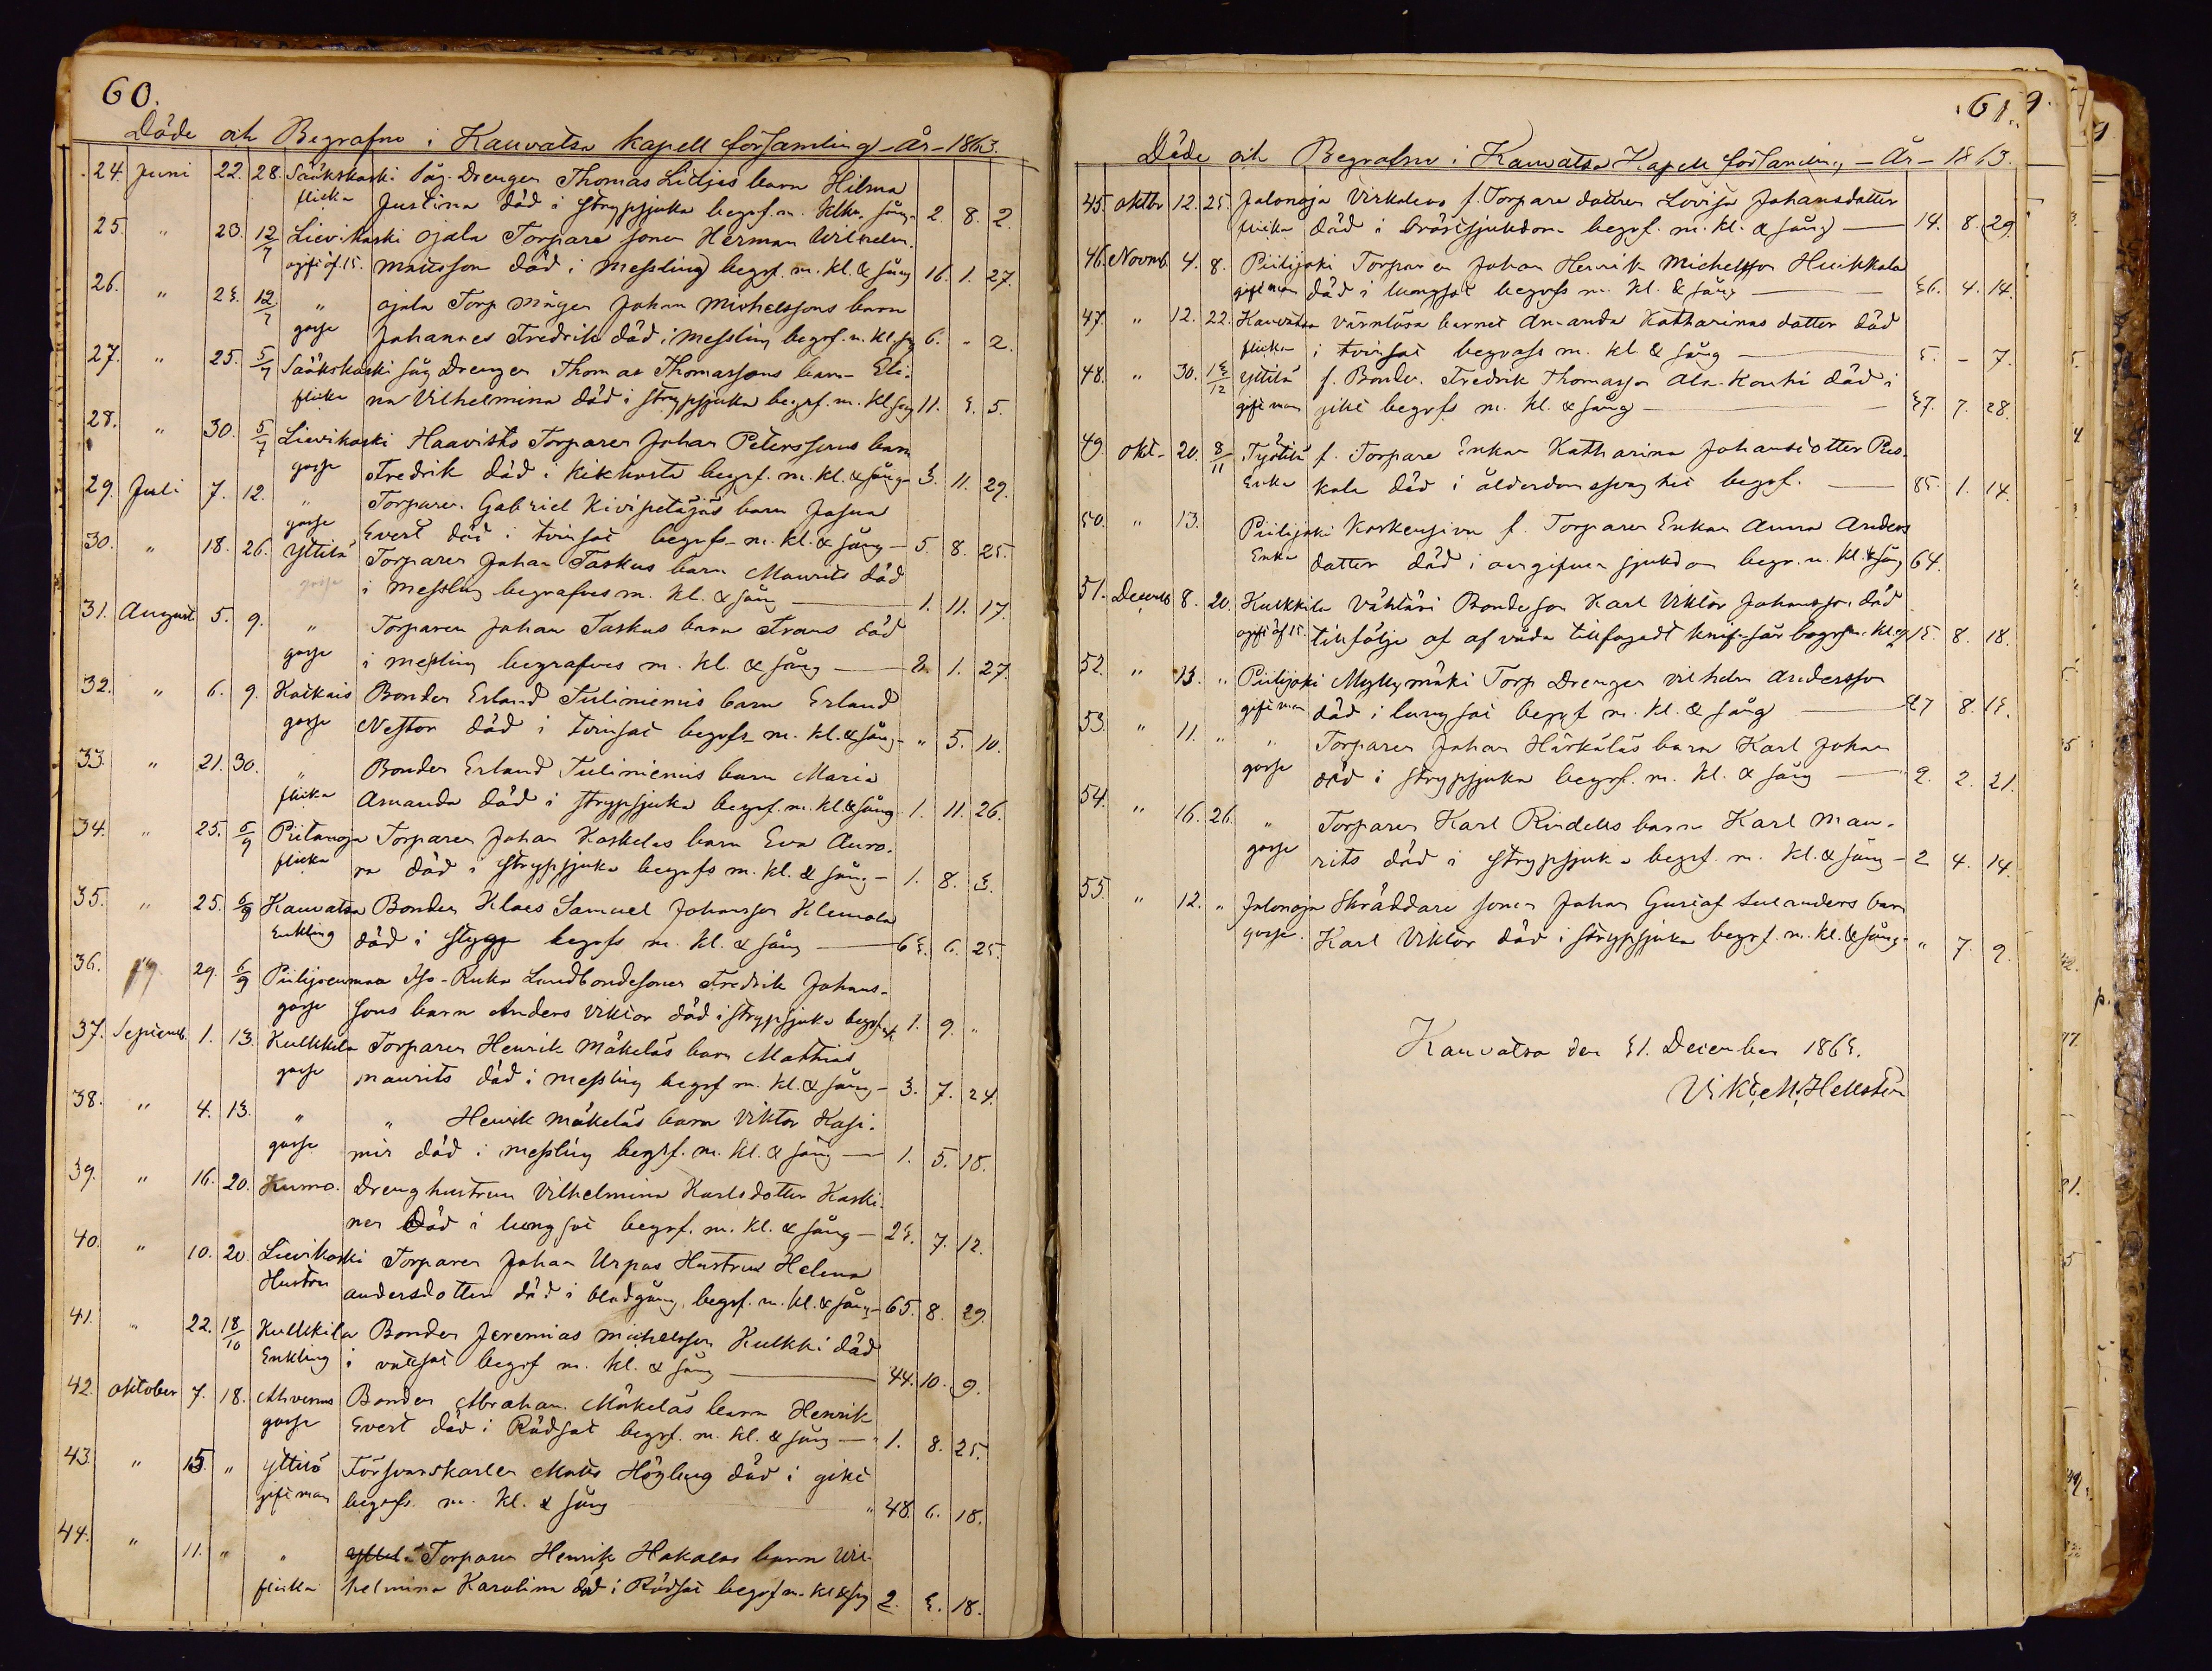 60.
Döde och Begrafne i Kauvatsa kapell församling - År - 1863.
24. Juni 22. 28. Sääkskoski Såg. Drengen Thomas Lidjes barn Hilma
flicka Justina död i strypsjuka begrf. m. Klk. sång - 2. 8. 2.
25. " 23. 12/7 Lievikoski Ojala Torpare sonen Herman Wilhelm
ogift öf. 15. Mattsson död i Messling begrf. m. Kl. & sång 16. 1. 27.
26. " 23. 12/7 " Ojala Torp mågen Johan Michelssons barn
gosse Johannes Fredrik död i Messling begrf. m. Kl. sg 6. " 2.
27. " 25. 5/7 Sääkskoski Såg Drengen Thomas Thomassons barn Eli-
flicka na Vilhelmina död i strypsjuka begrf. m. Kl. sång 11. 3. 5.
28. " 30. 5/7 Lievikoski Haavisto Torparen Johan Peterssons barn
gosse Fredrik död i Kikhosta begrf. m. Kl. & sång - 3. 11. 29.
29. Juli 7. 12. " Torparen Gabriel Kivipeltos barn Josua
gosse Evert död i tvinsot begrfs. m. Kl. & sång - 5. 8. 25.
30. " 18. 26. Yttilä Torparen Johan Taskus barn Maurits död
gosse i messling begrafves m. Kl. & sång 1. 11. 17.
31. August 5. 9. " Torparen Johan Taskus barn Frans död
gosse i messling begrafves m. Kl. & sång - 3. 1. 27.
32. " 6. 9. Koskois Bonden Erland Tuliniemis barn Erland
gosse Nestor död i tvinsot begrfs. m. Kl. & sång - " 5. 10.
33. " 21. 30. " Bonden Erland Tuliniemis barn Maria
flicka Amanda död i strypsjuka begrf. m. Kl. & sång 1. 11. 26.
34. " 25. 6/9 Piitanoja Torparen Johan Koskelas barn Eva Auro-
flicka ra död i strypsjuka begrfs m. Kl. & sång - 1. 8. 3.
35. " 25. 6/9 Kauvatsa Bonden Klaes Samuel Johansson Klemola
Enkling död i stygg begrfs m. Kl. & sång - 63. 6. 25.
36. " 29. 6/9 Piilijoenmaa Iso-Ruka Landbondesonen Fredrik Johans-
gosse sons barn Anders Viktor död i strypsjuka begrf. 1. 9. "
37. Septemb. 1. 13. Kulkkila Torparen Henrik Mäkeläs barn Mathias
gosse Maurits död i messling begrf m. Kl. & sång - 3. 7. 24.
38. " 4. 13. " " Henrik Mäkeläs barn Viktor Kasi-
gosse mir död i messling begrf. m. Kl. & sång - 1. 5. 18.
39. " 16. 20. Kumo. Dreng hustrun Vilhelmina Karlsdotter Koski-
nen Död i lungsot begrf. m. Kl. & sång - 23. 7. 12.
40. " 10. 20. Lievikoski Torparen Johan Urpas Hustrun Helena
Hustru andersdotter död i blodgång, begrf. m. Kl. & sång - 65. 8. 29.
41. " 22. 18/10 Kulkkila Bonden Jeremias Michelsson Kulkki död
Enkling i votsot begrf m. Kl. & sång 44. 10. 9.
42. Oktober 7. 18. Ahvenus Bonden Abraham Mäkeläs barn Henrik
gosse Evert död i Rödsot begrf. m. Kl. & sång - 1. 8. 25.
43. " 15. " Yttilä Försvarskarlen Matts Högberg död i gikt
gift man begrfs. m. Kl. & sång " 48. 6. 18.
44. " 11. " " Torparen Henrik Hakalas barn Vil-
flicka helmina Karolina död i Rödsot begrf m. Kl & sg 2. 3. 18.
61.
Döde och Begrafne i Kauvatsa Kapell församling - År - 1863.
45. Oktbr 12. 25. Jalonoja Virkalevo f. Torpare dottren Lovisa Johansdotter
flicka död i bröstsjukdom begrf. m. Kl. & sång 14. 8. 29.
46. Novmb. 4. 8. Piilijoki Torparen Johan Henrik Michelsson Huikkala
gift man död i lungsot begrfs m. Kl. & sång 36. 4. 14.
47. " 12. 22. Kauvatsa värnlösa barnet Amanda Katharinas dotter död
flicka i tvinsot begrafs m. Kl. & sång 5. - 7.
48. " 30. 13/12 Yttilä f. Bonden Fredrik Thomasson Ala-Kouhi död i
gift man gikt begrfs m. Kl. & sång 37. 7. 28.
49. Okt- 20. 8/11 Työtilä f. Torpare Enkan Katharina Johansdotter Rus-
Enka kala död i ålderdomssvaghet begrf. 85. 1. 14.
50. " 13. Piilijoki Koskensivu f. Torparen Enkan Anna Anders
Enka dotter död i oangifven sjukdom begr. m. Kl. & sång 64.
51. Decemb 8. 20. Kulkkila Vähtäri Bondeson Karl Viktor Johansson död
ogift öf 15. till följe af af våda tillfogadt knif-sår begrf m. Kl. 15. 8. 18.
52. " 13. " Piilijoki Myllymäki Torp Drengen Vilhelm Andersson
gift man död i lungsot begrf m. Kl. & sång 27 8. 13.
53. " 11. " " Torparen Johan Härkäläs barn Karl Johan
gosse död i strypsjuka begrf. m. Kl. & sång 2. 2. 21.
54. " 16. 26. " Torparen Karl Rindells barn Karl Mau-
gosse rits död i strypsjuka begrf. m. Kl. & sång - 2 4. 14.
55. " 12. " Jalonoja Skräddare sonen Johan Gustaf Sueranders barn
gosse. Karl Viktor död i strypsjuka begrf. m. Kl. & sång - " 7. 2.
Kauvatsa den 31. December 1863.
Vikt. M. Hellstén